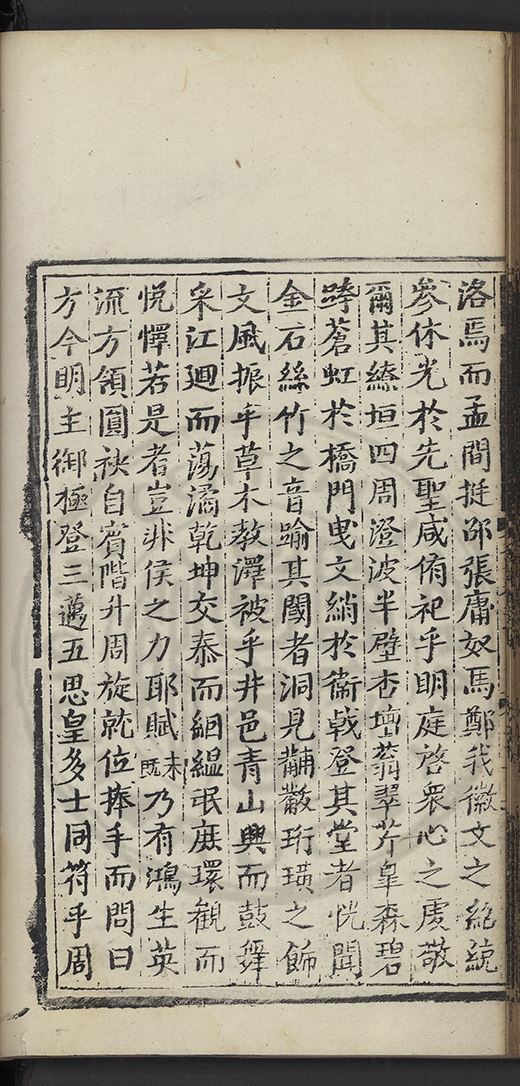 洛焉而孟間挺邵張庸奴馬鄭我徽文之絕統
參休光於先聖咸侑祀乎明庭啓衆心之虔敬
爾其繚垣四周澄波半壁杏壇蓊翠芹臯森碧
跨蒼虹於橋門曳文綃於衞戟登其堂者恍聞
金石絲竹之音踰其閾者洞見黼黻珩璜之飾
文風振乎草木教澤被乎井邑青山興而鼓舞
采江廻而蕩潏乾坤交泰而絪緼氓庶環觀而
悅懌若是者豈非侯之力耶賦未既乃有鴻生英
流方領圓袂自賓階升周旋就位捧手而問曰
方今明主御極登三邁五思皇多士同符乎周